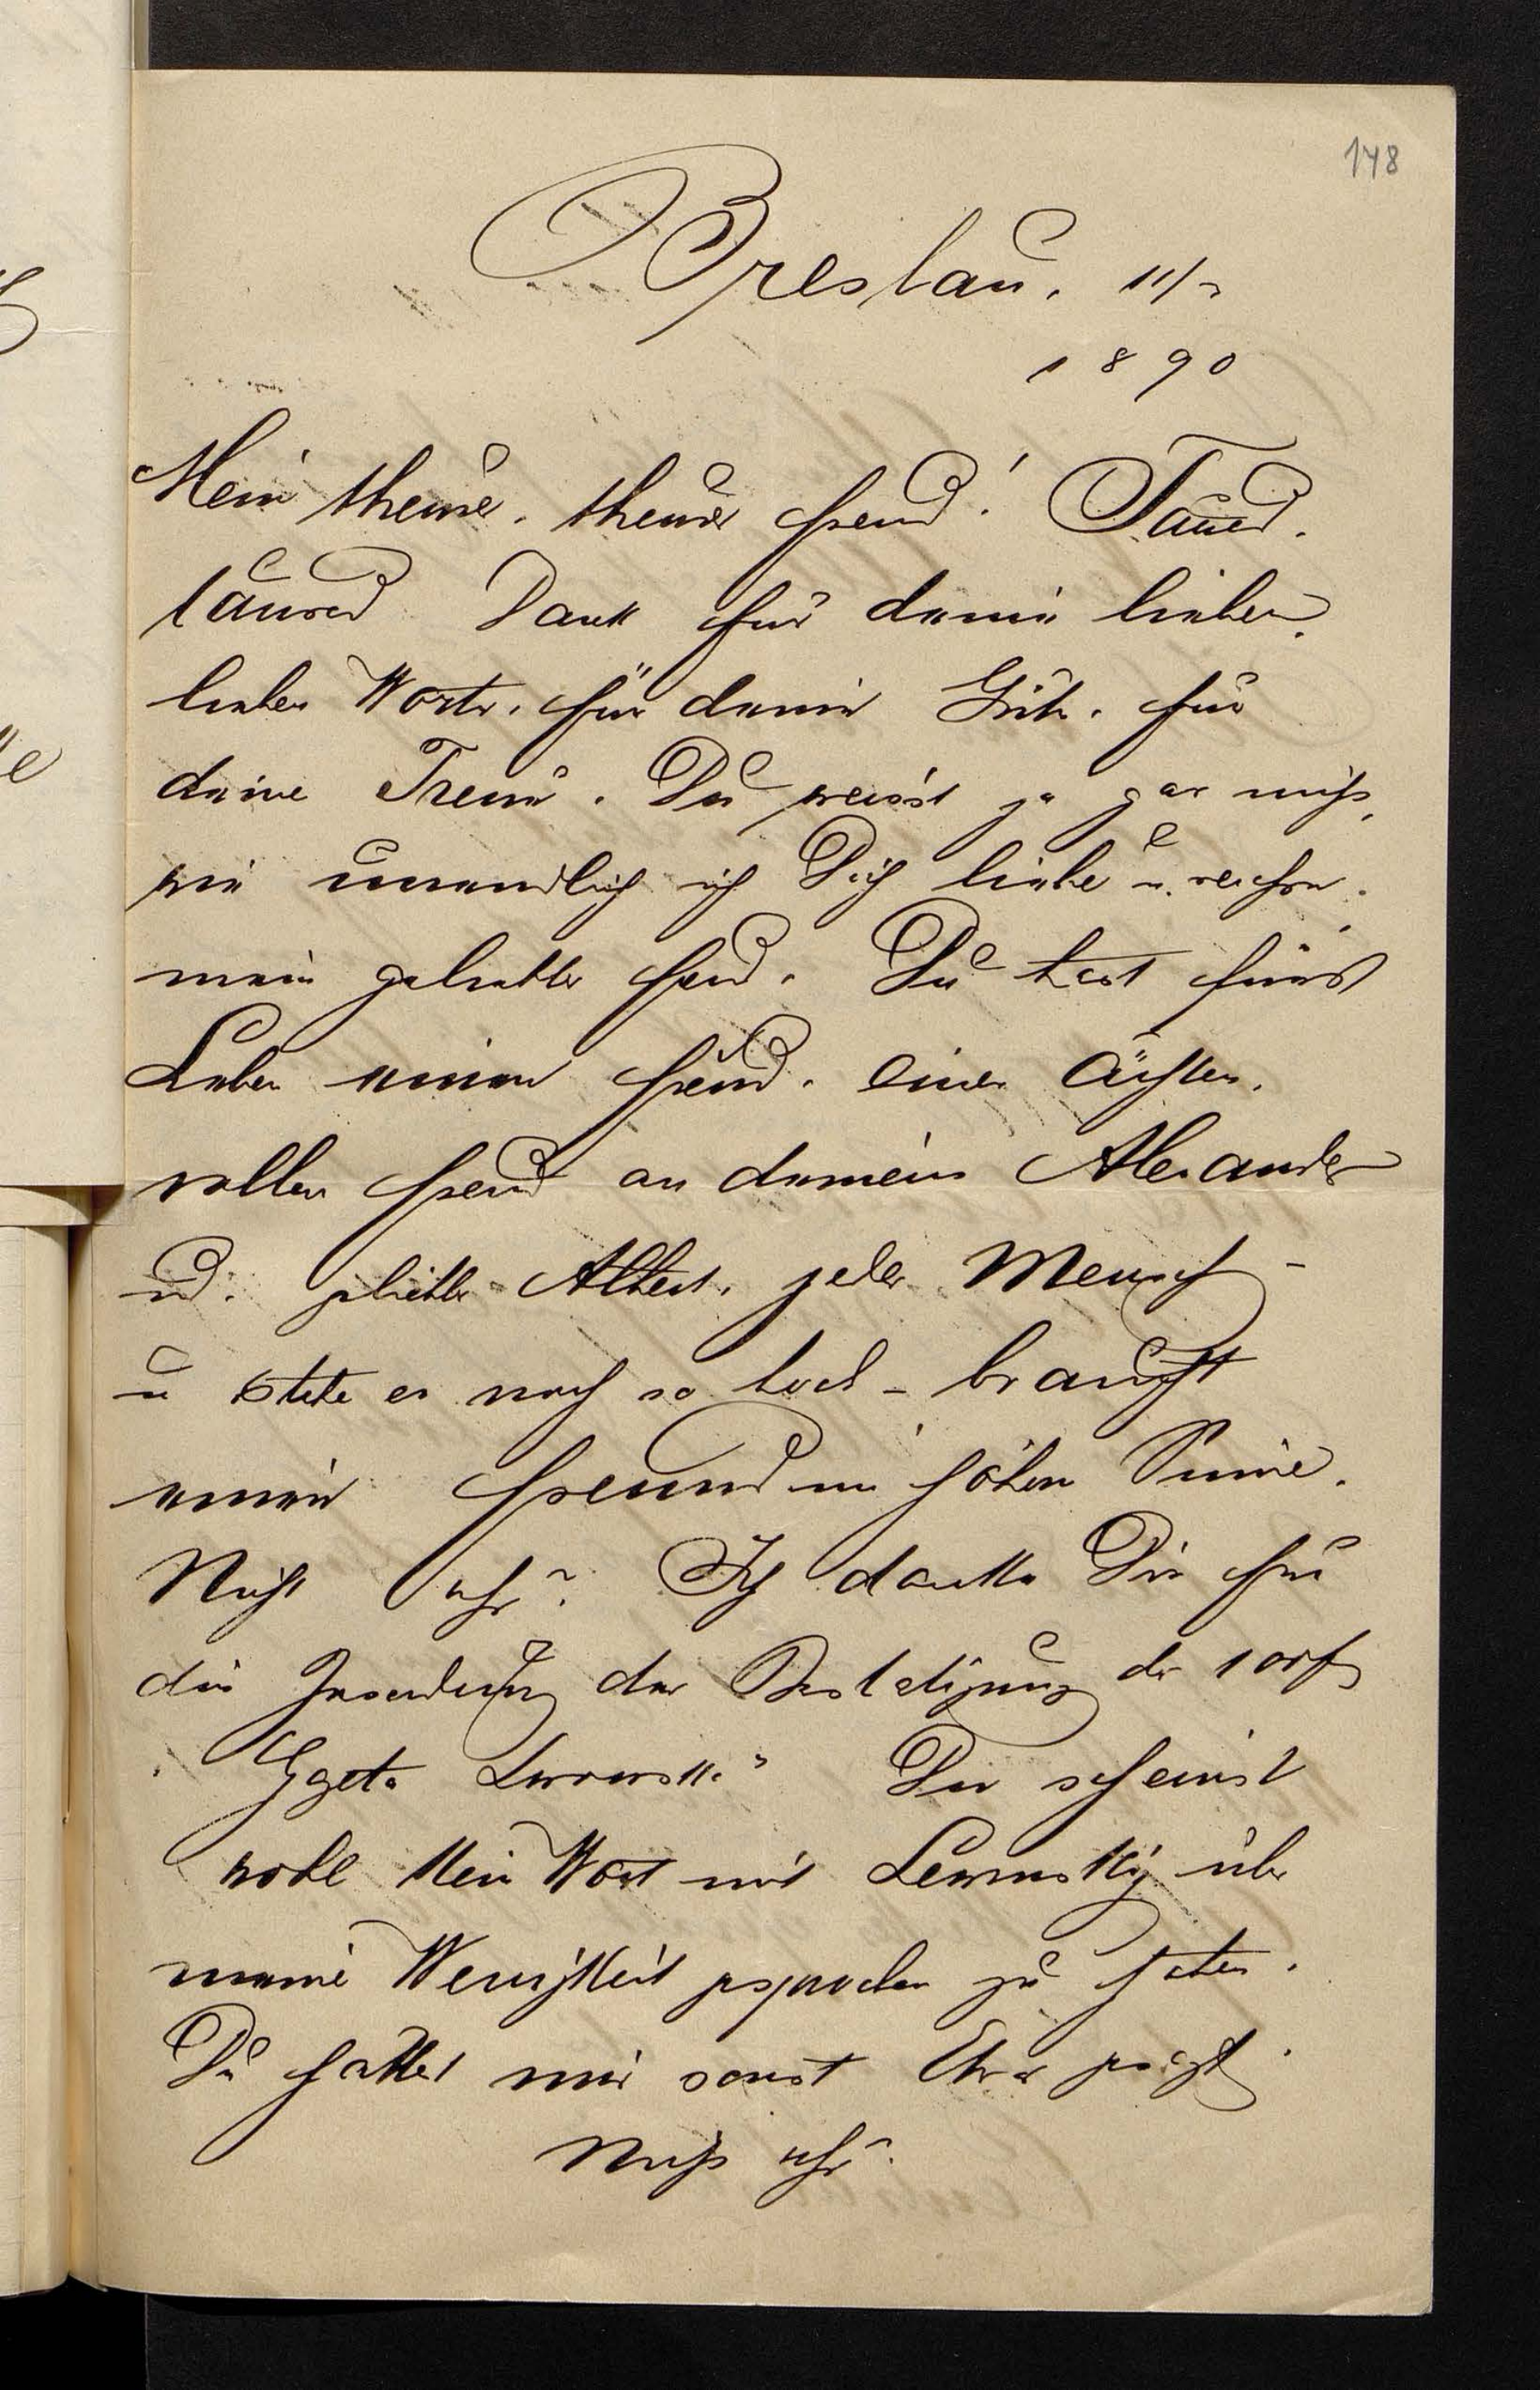 148
Breslau, 11/
1890
Mein theurer, theurer Freund! Tausend,
tausend Dank für deine lieben,
lieben Worte, für deine Güte, für
deine Treue. Du weisst ja gar nicht,
wie unendlich ich Dich liebe u. verehre,
mein geliebter Freund. Du hast fürs
Leben einen Freund, einen ächten,
vollen Freund an deinem Alexander
und, geliebter Albert, jeder Mensch -
u stehe er noch so hoch - braucht
einen Freund im höhern Sinne.
Nicht wahr? Ich danke Dir für
die Zusendung der Bestätigung der
Du scheinst
wohl kein Wort mit Lewinsky über
meine Wenigkeit gesprochen zu haben.
Du hättest mir sonst Etwas gesagt.
Nicht wahr?